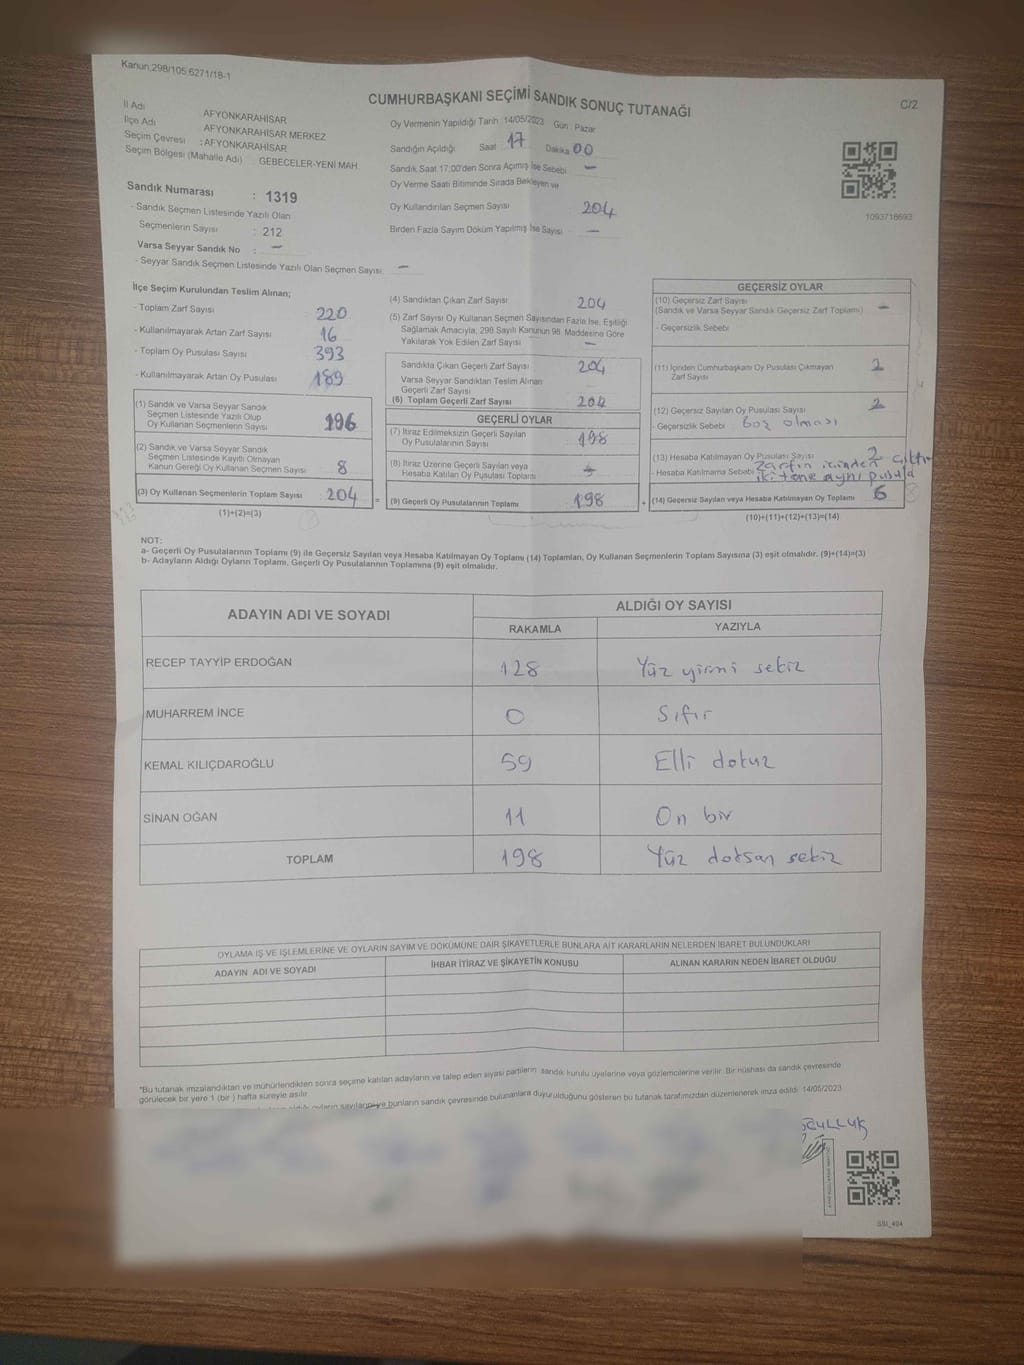 Kanun:298/105;6271/18-1
CUMHURBAŞKANI SEÇİMİ SANDIK SONUÇ TUTANAĞI
C/2
İl Adı : AFYONKARAHİSAR
İlçe Adı : AFYONKARAHİSAR MERKEZ
Seçim Çevresi : AFYONKARAHİSAR
Seçim Bölgesi (Mahalle Adı) GEBECELER-YENİ MAH.
Oy Vermenin Yapıldığı Tarih :14/05/2023 Gün : Pazar
Sandığın Açıldığı Saat 17 Dakika 00
Sandık Saat 17:00'den Sonra Açılmış İse Sebebi : —
Oy Verme Saati Bitiminde Sırada Bekleyen ve
Oy Kullandırılan Seçmen Sayısı : 204
Birden Fazla Sayım Döküm Yapılmış İse Sayısı : —
1093718693
Sandık Numarası : 1319
- Sandık Seçmen Listesinde Yazılı Olan
Seçmenlerin Sayısı : 212
Varsa Seyyar Sandık No : —
- Seyyar Sandık Seçmen Listesinde Yazılı Olan Seçmen Sayısı: —
İlçe Seçim Kurulundan Teslim Alınan;
- Toplam Zarf Sayısı 220
- Kullanılmayarak Artan Zarf Sayısı 16
- Toplam Oy Pusulası Sayısı 393
- Kullanılmayarak Artan Oy Pusulası 189
(1) Sandık ve Varsa Seyyar Sandık
Seçmen Listesinde Yazılı Olup
Oy Kullanan Seçmenlerin Sayısı 196
(2) Sandık ve Varsa Seyyar Sandık
Seçmen Listesinde Kayıtlı Olmayan
Kanun Gereği Oy Kullanan Seçmen Sayısı 8
(3) Oy Kullanan Seçmenlerin Toplam Sayısı 204 =
(1)+(2)=(3)
(4) Sandıktan Çıkan Zarf Sayısı 204
(5) Zarf Sayısı Oy Kullanan Seçmen Sayısından Fazla İse, Eşitliği
Sağlamak Amacıyla, 298 Sayılı Kanunun 98. Maddesine Göre
Yakılarak Yok Edilen Zarf Sayısı —
Sandıkta Çıkan Geçerli Zarf Sayısı 204
Varsa Seyyar Sandıktan Teslim Alınan
Geçerli Zarf Sayısı
(6) Toplam Geçerli Zarf Sayısı 204
GEÇERLİ OYLAR
(7) İtiraz Edilmeksizin Geçerli Sayılan
Oy Pusulalarının Sayısı 198
(8) İtiraz Üzerine Geçerli Sayılan veya
Hesaba Katılan Oy Pusulası Toplamı
(9) Geçerli Oy Pusulalarının Toplamı 198 +
GEÇERSİZ OYLAR
(10) Geçersiz Zarf Sayısı
(Sandık ve Varsa Seyyar Sandık Geçersiz Zarf Toplamı) —
- Geçersizlik Sebebi
(11) İçinden Cumhurbaşkanı Oy Pusulası Çıkmayan
Zarf Sayısı 2
(12) Geçersiz Sayılan Oy Pusulası Sayısı 2
- Geçersizlik Sebebi Boş olması
(13) Hesaba Katılmayan Oy Pusulası Sayısı 2
- Hesaba Katılmama Sebebi Zarfın içinden çıktı
iki tane aynı pusula
(14) Geçersiz Sayılan veya Hesaba Katılmayan Oy Toplamı 6
(10)+(11)+(12)+(13)=(14)
NOT:
a- Geçerli Oy Pusulalarının Toplamı (9) ile Geçersiz Sayılan veya Hesaba Katılmayan Oy Toplamı (14) Toplamları, Oy Kullanan Seçmenlerin Toplam Sayısına (3) eşit olmalıdır. (9)+(14)=(3)
b- Adayların Aldığı Oyların Toplamı, Geçerli Oy Pusulalarının Toplamına (9) eşit olmalıdır.
ADAYIN ADI VE SOYADI
ALDIĞI OY SAYISI
RAKAMLA YAZIYLA
RECEP TAYYİP ERDOĞAN 128 Yüz yirmi sekiz
MUHARREM İNCE 0 Sıfır
KEMAL KILIÇDAROĞLU 59 Elli dokuz
SİNAN OĞAN 11 On bir
TOPLAM 198 Yüz doksan sekiz
OYLAMA İŞ VE İŞLEMLERİNE VE OYLARIN SAYIM VE DÖKÜMÜNE DAİR ŞİKAYETLERLE BUNLARA AİT KARARLARIN NELERDEN İBARET BULUNDUKLARI
ADAYIN ADI VE SOYADI İHBAR İTİRAZ VE ŞİKAYETİN KONUSU ALINAN KARARIN NEDEN İBARET OLDUĞU
*Bu tutanak imzalandıktan ve mühürlendikten sonra seçime katılan adayların ve talep eden siyasi partilerin sandık kurulu üyelerine veya gözlemcilerine verilir. Bir nüshası da sandık çevresinde
görülecek bir yere 1 (bir ) hafta süreyle asılır.
oyların sayıları ve bunların sandık çevresinde bulunanlara duyurulduğunu gösteren bu tutanak tarafımızdan düzenlenerek imza edildi. 14/05/2023
SSI_404